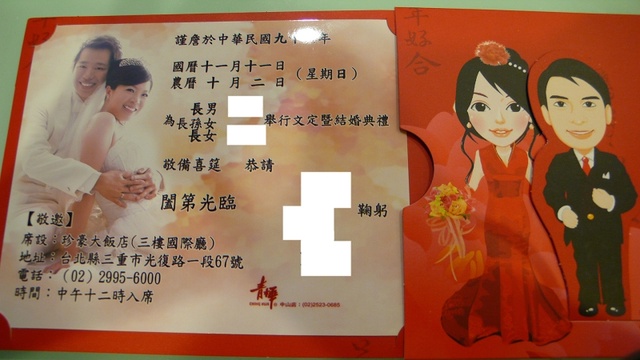 謹詹於中華民國九十年
國曆十一月十一日
農曆十月二日
(星期日)
長男
為長孫女
長女
舉行文定暨結婚典禮
敬備喜筵 恭請
闔第光臨
鞠躬
【敬邀】
席設：珍豪大飯店(三樓國際廳)
地址：台北縣三重市光復路一段67號
電話：(02) 2995-6000
時間：中午十二時入席
中山店：(02)2523-0685
年好合